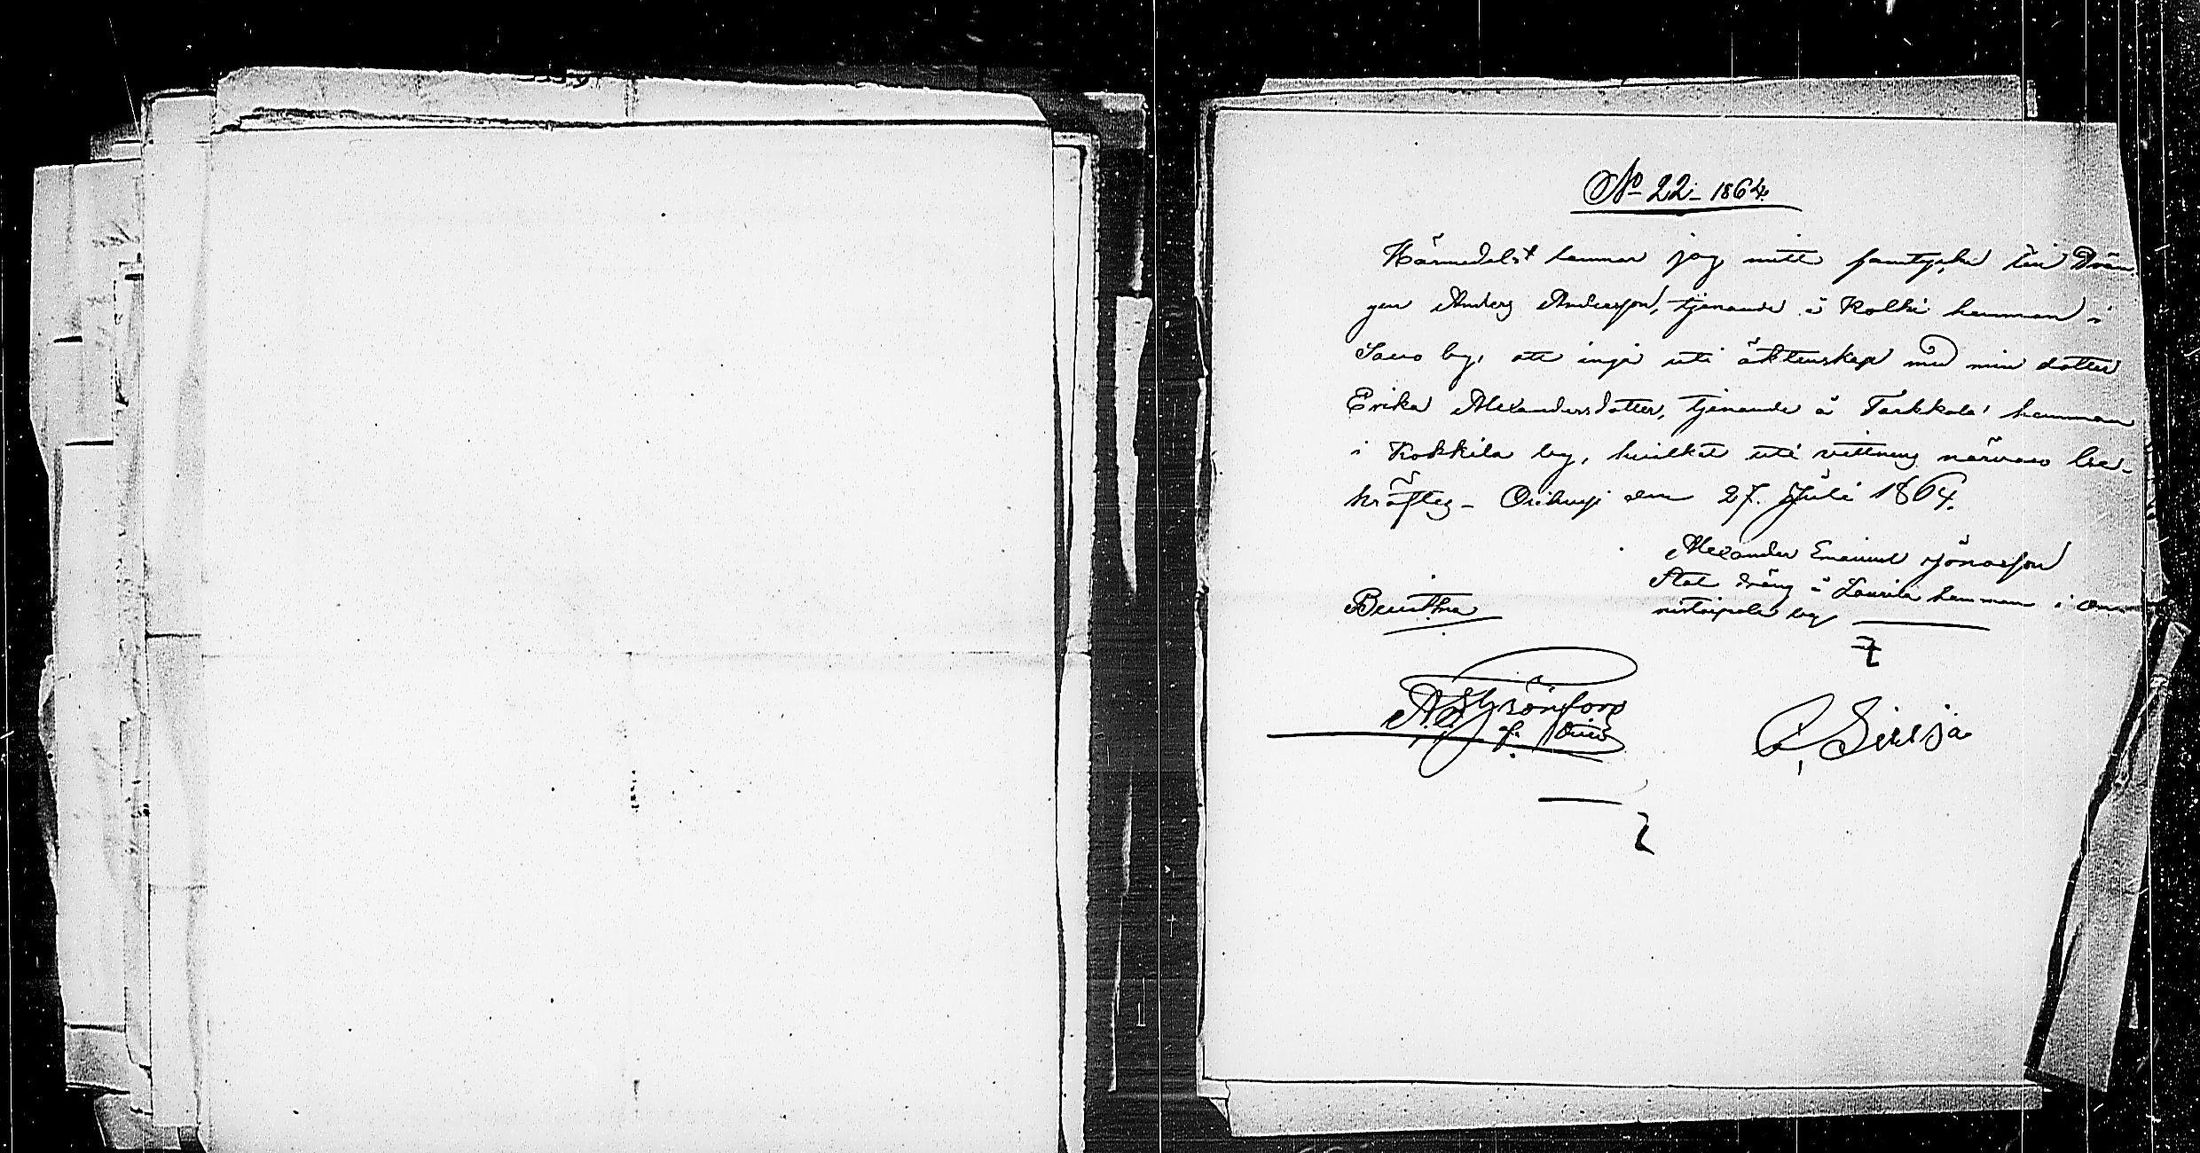 No 22 - 1864.
Härmedelst lemnar jag mitt samtycke till Drän
gen Anders Andersson, tjenande å Kolki hemman i
Sauvo by, att ingå uti äktenskap med min dotter
Erika Alexandersdotter, tjenande å Tarkkala hemman
i Kokkila by, hvilket uti vittnens närvaro be-
kräftas - Orihvesi den 27. Juli 1864.
Alexander Emanuel Jönasson
Stat dräng å Laurila hemman i On
nistaipale by
Bevittna